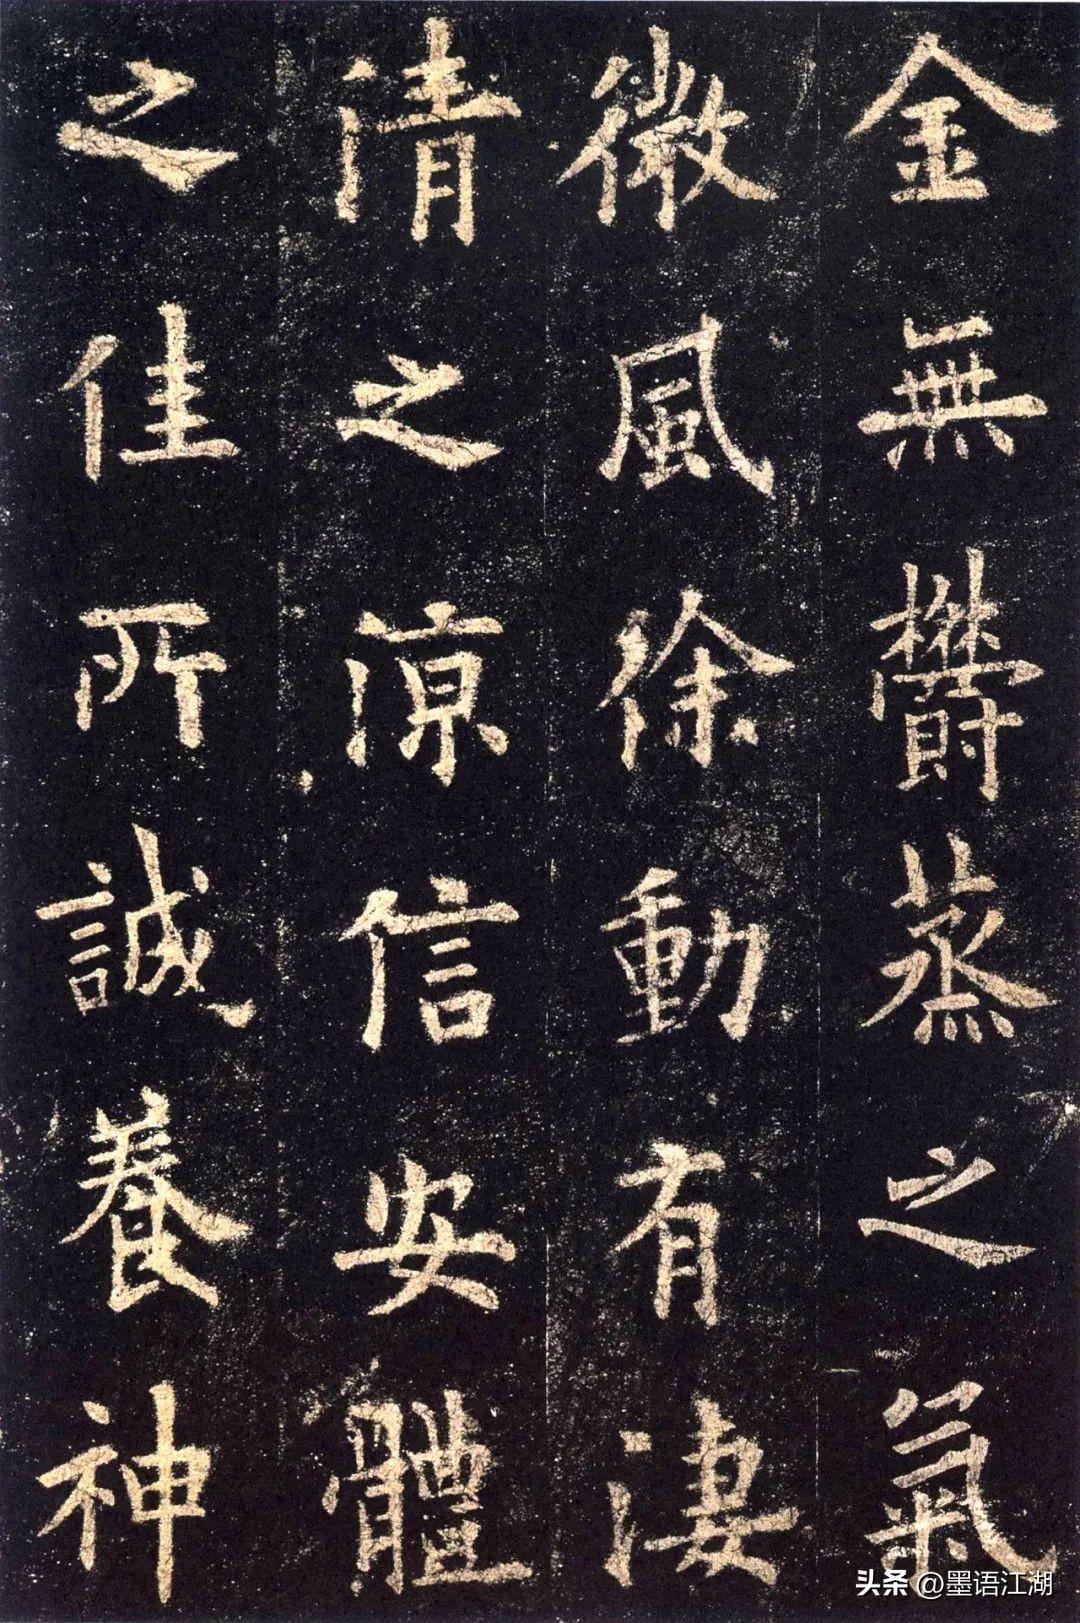 金無欝蒸之氣
微風徐動有淒
清之凉信安體
之佳所誠養神
头条 @墨语江湖